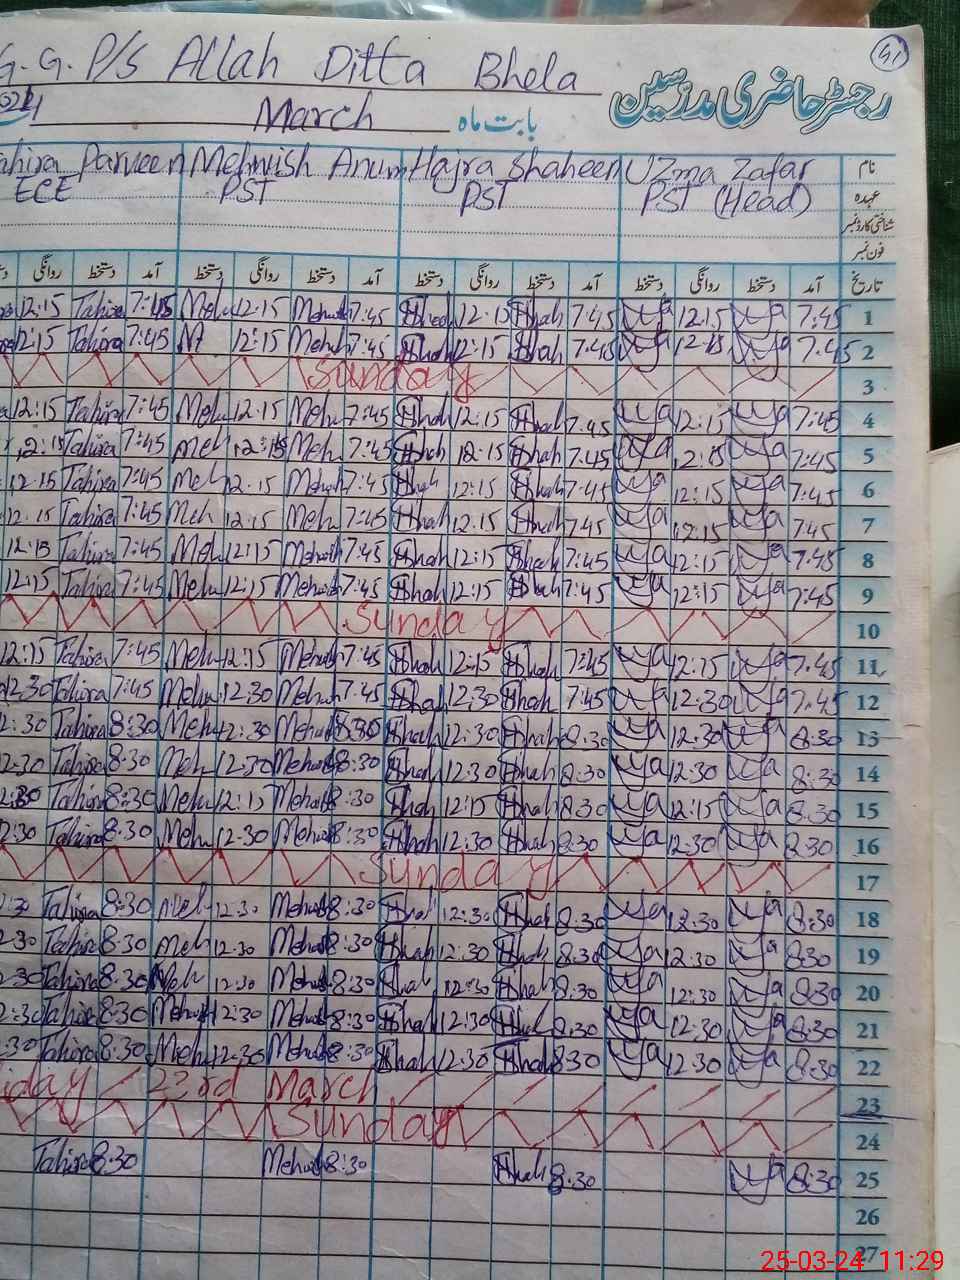 G.G. P/S Allah Ditta Bhela
رجسٹر حاضری مدرسین
41
March بابت ماہ
Tahira Parveen Mehwish Anum Hajra Shaheen Uzma Zafar نام
ECE PST PST PST (Head) عہدہ
شناختی کارڈ نمبر
فون نمبر
روانگی دستخط آمد دستخط روانگی دستخط آمد دستخط روانگی دستخط آمد دستخط روانگی دستخط آمد تاریخ
12:15 Tahira 7:45 Meh 12:15 Mehwish 7:45 12:15 Shah 7:45 12:15 7:45 1
12:15 Tahira 7:45 M 12:15 Mehwish 7:45 Shah 12:15 Shah 7:45 12:15 7:45 2
Sunday 3
12:15 Tahira 7:45 Meh 12:15 Meh 7:45 Shah 12:15 Shah 7:45 12:15 7:45 4
12:15 Tahira 7:45 Meh 12:15 Meh 7:45 Shah 12:15 Shah 7:45 12:15 7:45 5
12:15 Tahira 7:45 Meh 12:15 Mehwish 7:45 Shah 12:15 Shah 7:45 12:15 7:45 6
12:15 Tahira 7:45 Meh 12:15 Meh 7:45 Shah 12:15 Shah 7:45 12:15 7:45 7
12:15 Tahira 7:45 Meh 12:15 Mehwish 7:45 Shah 12:15 Shah 7:45 12:15 7:45 8
12:15 Tahira 7:45 Meh 12:15 Mehwish 7:45 Shah 12:15 Shah 7:45 12:15 7:45 9
Sunday 10
12:15 Tahira 7:45 Meh 12:15 Mehwish 7:45 Shah 12:15 Shah 7:45 12:15 7:45 11
12:30 Tahira 7:45 Meh 12:30 Mehwish 7:45 Shah 12:30 Shah 7:45 12:30 7:45 12
:30 Tahira 8:30 Meh 12:30 Mehwish 8:30 Shah 12:30 Shah 8:30 12:30 8:30 13
2:30 Tahira 8:30 Meh 12:30 Mehwish 8:30 Shah 12:30 Shah 8:30 12:30 8:30 14
Tahira 8:30 Meh 12:15 Mehwish 8:30 Shah 12:15 Shah 8:30 12:15 8:30 15
2:30 Tahira 8:30 Meh 12:30 Mehwish 8:30 Shah 12:30 Shah 8:30 12:30 8:30 16
Sunday 17
:30 Tahira 8:30 Meh 12:30 Mehwish 8:30 Shah 12:30 Shah 8:30 12:30 8:30 18
2:30 Tahira 8:30 Meh 12:30 Mehwish 8:30 Shah 12:30 Shah 8:30 12:30 8:30 19
2:30 Tahira 8:30 Meh 12:30 Mehwish 8:30 Shah 12:30 Shah 8:30 12:30 8:30 20
2:30 Tahira 8:30 Mehwish 12:30 Mehwish 8:30 Shah 12:30 8:30 12:30 8:30 21
:30 Tahira 8:30 Meh 12:30 Mehwish 8:30 Shah 12:30 Shah 8:30 12:30 8:30 22
iday 23rd March 23
Sunday 24
Tahira 8:30 Mehwish 8:30 Shah 8:30 8:30 25
26
27
25-03-24 11:29